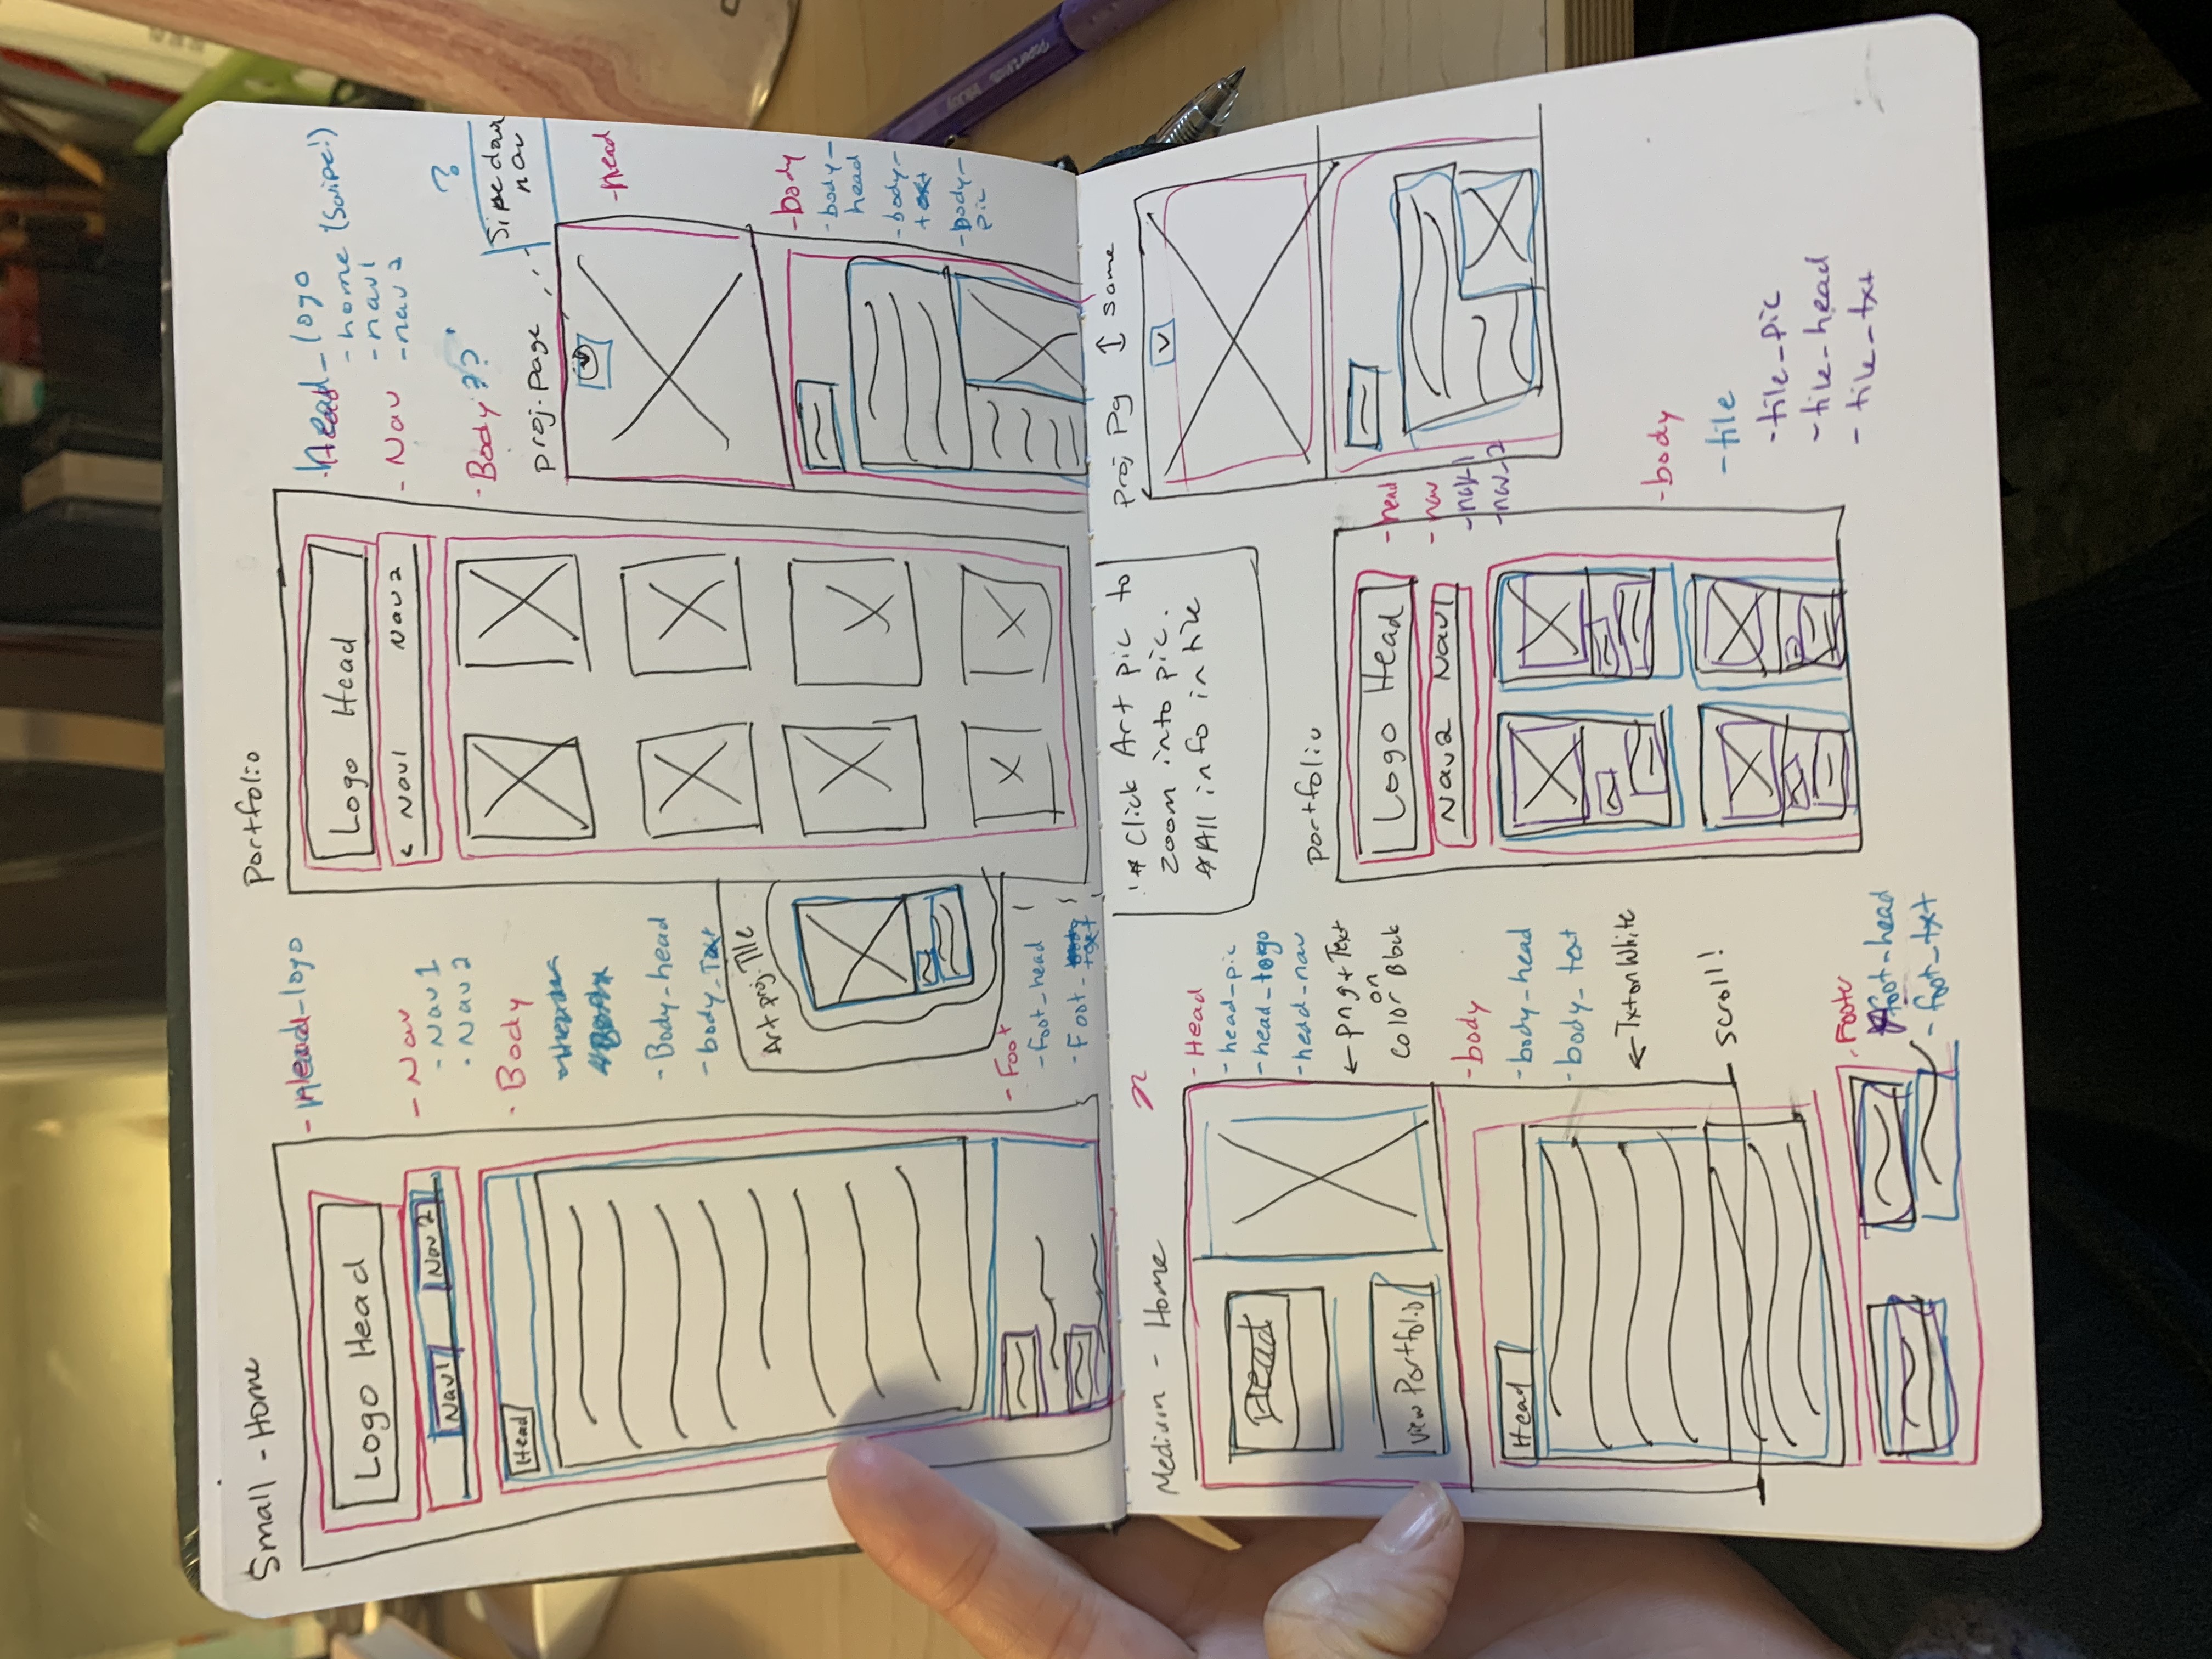 Small - Home
Logo Head
Nav1
Nav 2
Head
- Head_logo
- Nav
- Nav 1
- Nav 2
- Body
- Body_head
- body_Text
Art proj. Tile
- Foot
- Foot_head
- Foot_text
Portfolio
Logo Head
< Nav1
Nav 2
- Head_logo
- home (Swipe!)
- nav1
- nav 2
- Nav
- Body ??
?
Sipe down
nav
proj. page
- head
- body
- body-
head
- body-
text
- body-
pic
Medium - Home
Head
View Portfolio
Head
- Head
- head_pic
- head_logo
- head-nav
← png + Text
on
Color Block
- body
- body_head
- body_text
← Txt on White
scroll!
- Footer
foot-head
- foot_txt
* Click Art pic to
zoom into pic.
* All info in tile
Portfolio
Logo Head
Nav2 Nav1
- head
- nav
- nav_2
- body
- tile
- tile_pic
- tile_head
- tile_txt
Proj Pg ↕ same